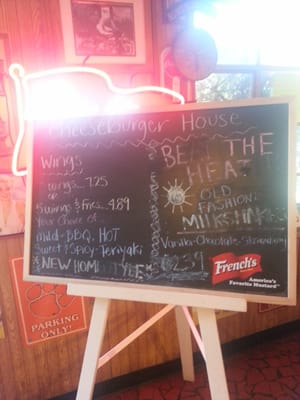 Cheeseburger House
Wings
wings 7.25
5 wings & Fries 4.89
Your Choice of
mild-BBQ, HOT
Sweet & Spicy-Teriyaki
& NEW HOME STYLE
BEAT THE
HEAT
OLD
FASHION
MILKSHAKES
Vanilla-Chocolate-Strawberry
2.39
French's
America's
Favorite Mustard
PARKING
ONLY